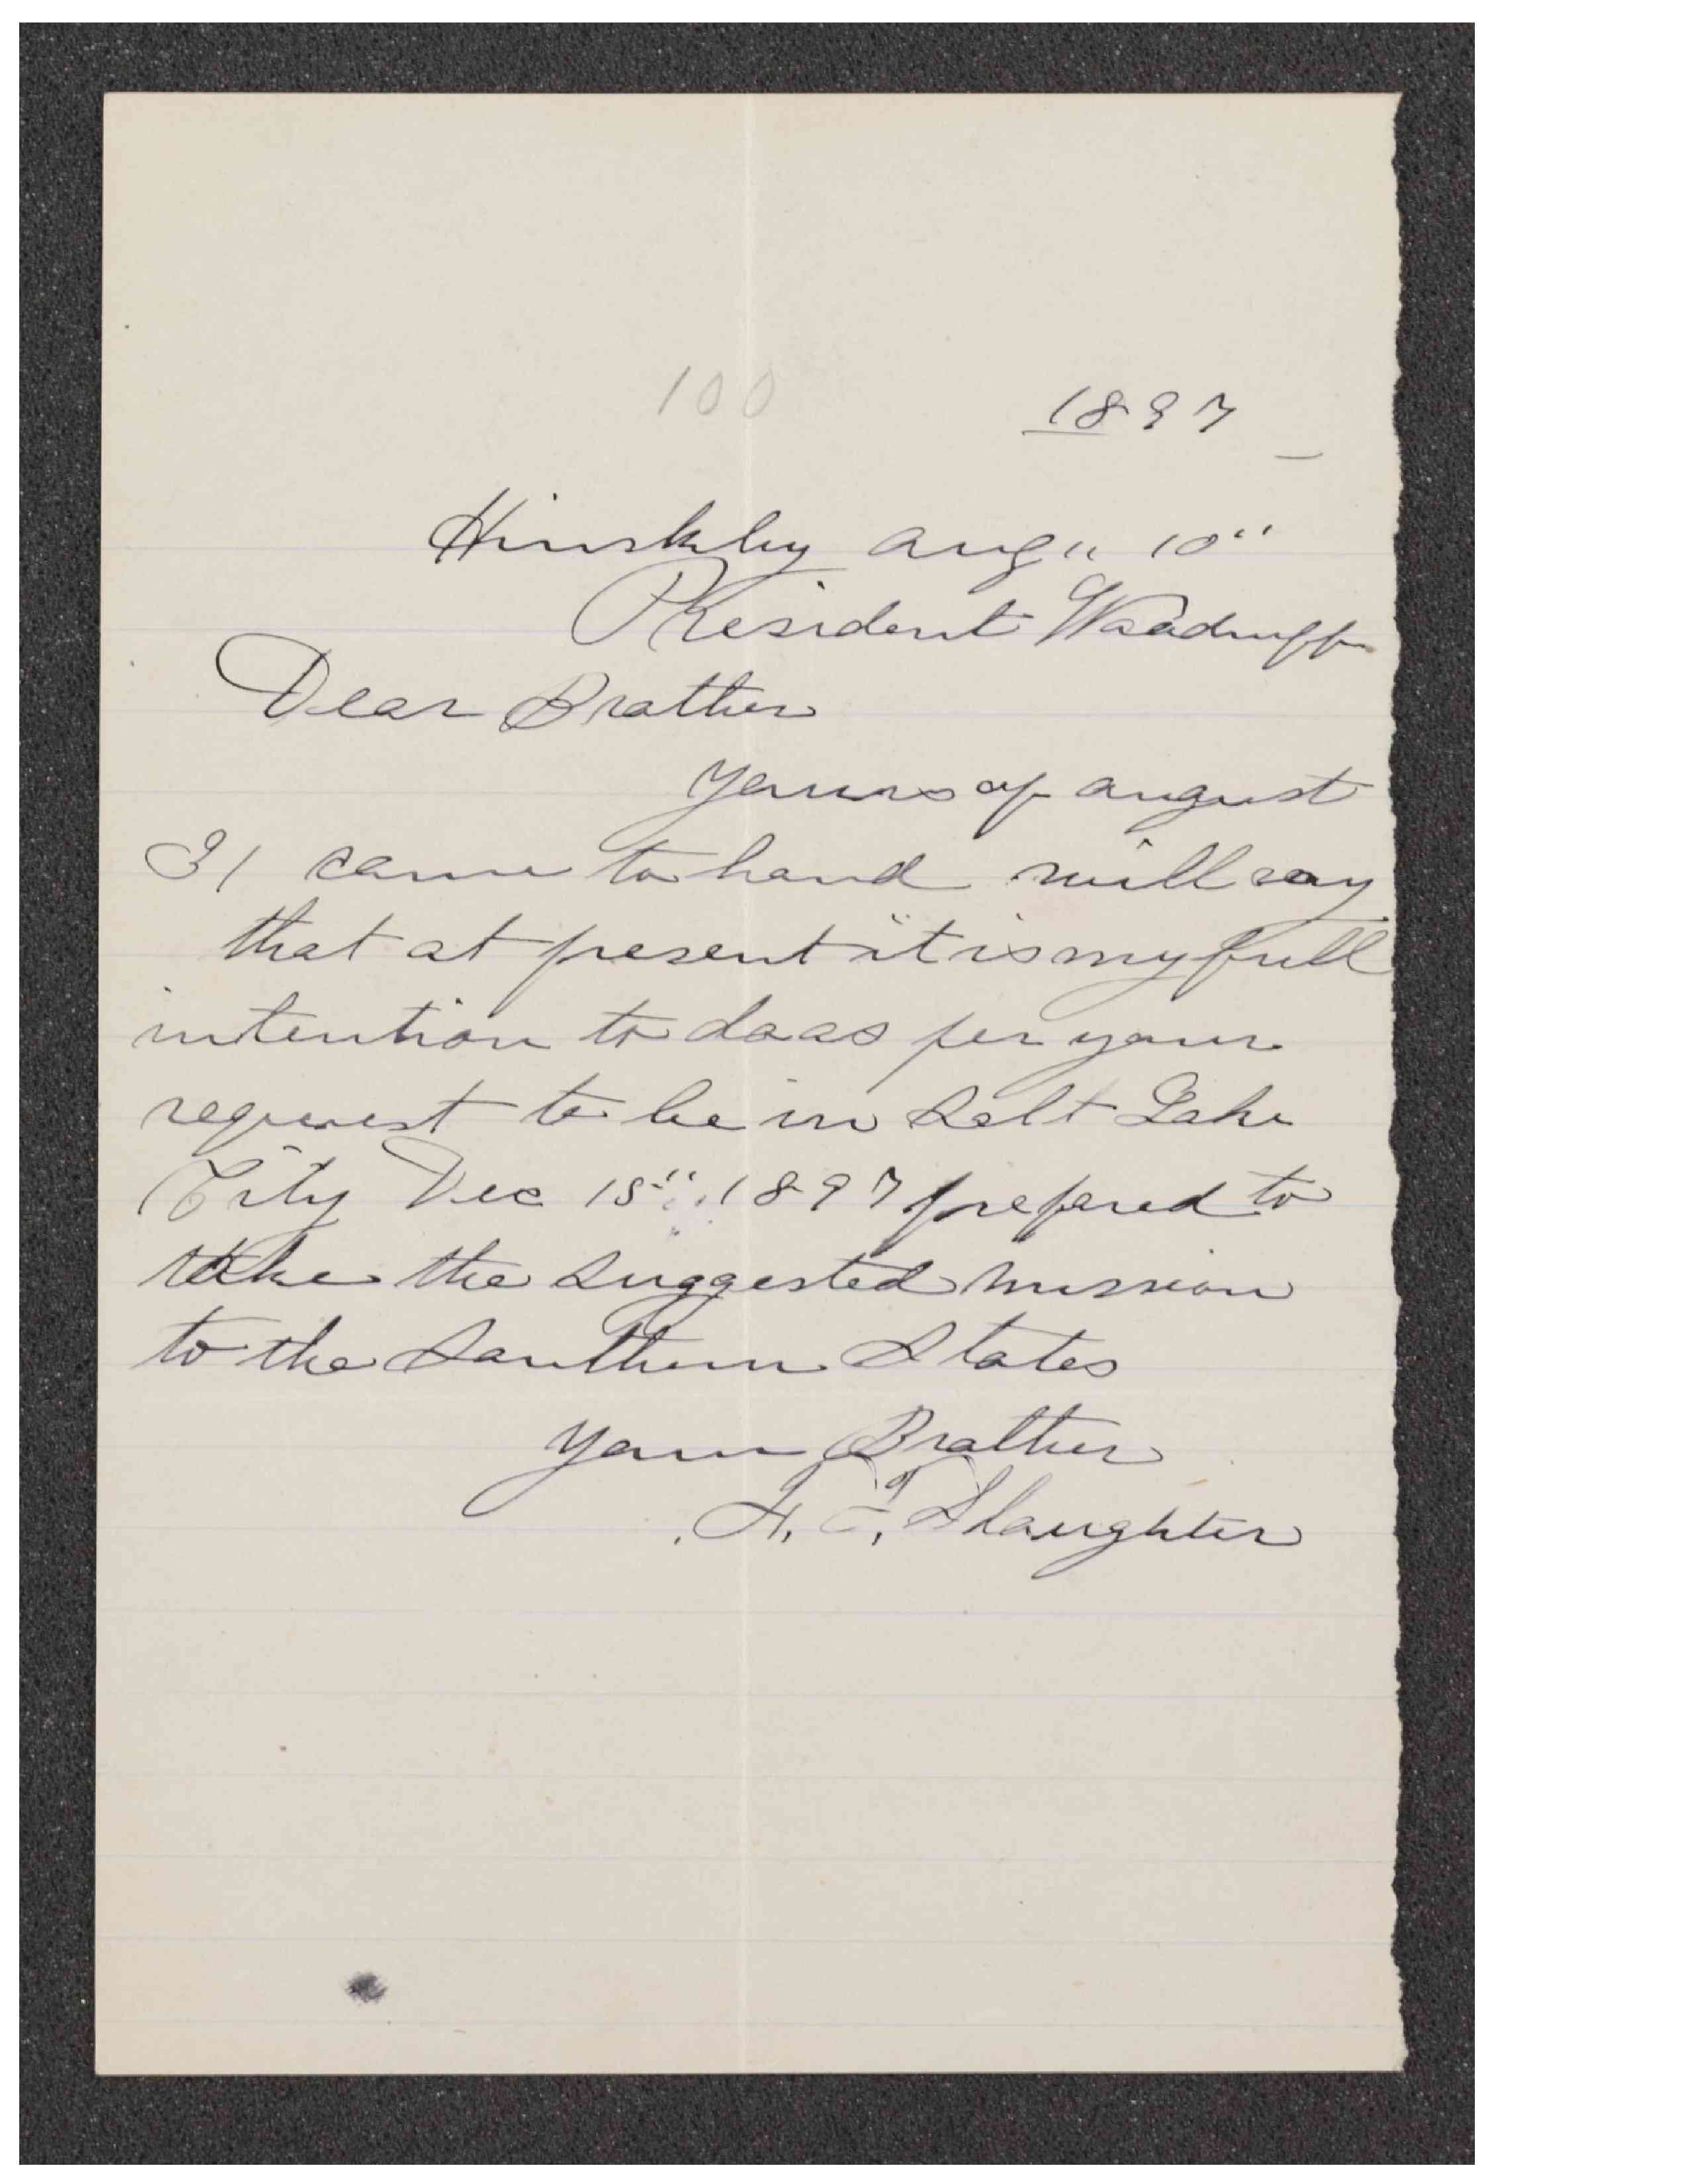 100
1897
Hinskley Aug " 10"
President Woodruff
Dear Brother
Yours of august
31 came to hand will say
that at present it is my full
intention to do as per your
request to be in Salt Lake
City Dec 15" 1897 prepared to
take the suggested mission
to the Southern States
Your Brother
Slaughter